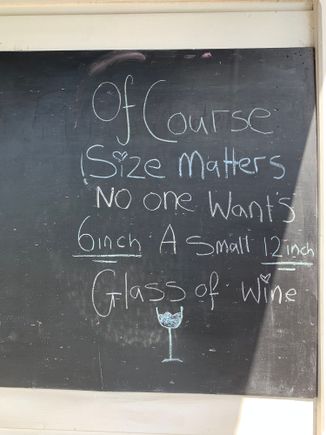 Of Course
Size Matters
No one Want's
6inch A Small 12inch
Glass of Wine